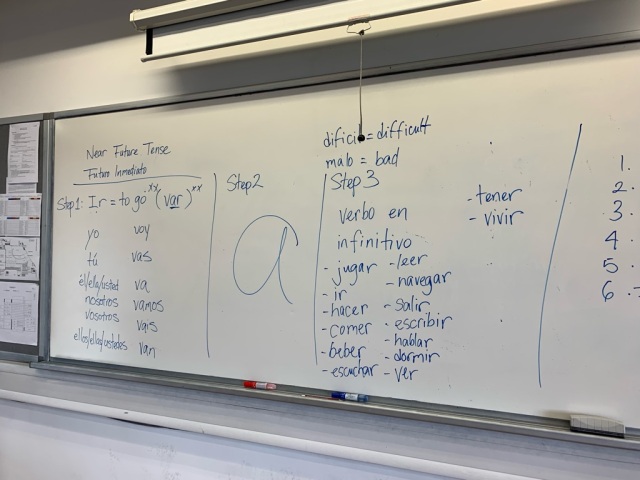 Near Future Tense
Futuro Inmediato
Step 1: Ir = to go xx (var) xx
yo voy
tú vas
él/ella/usted va
nosotros vamos
vosotros vais
ellos/ellas/ustedes van
Step 2
a
dificil = difficult
malo = bad
Step 3
verbo en
infinitivo
- jugar - leer
- ir - navegar
- hacer - salir
- comer - escribir
- beber - hablar
- escuchar - dormir
- ver
- tener
- vivir
1.
2.
3.
4.
5.
6.